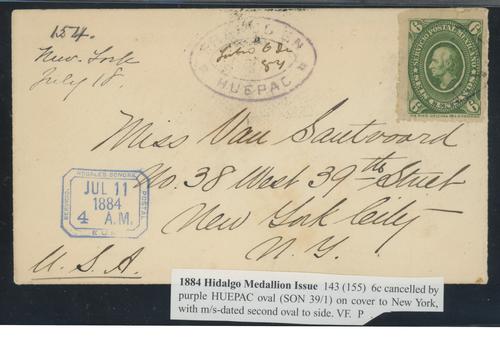 154.
New York
July 18.
FRANCO EN
Julio 6 de
84
HUEPAC
SERVICIO POSTAL MEXICANO
6 6
SEIS CENTAVOS
Miss Van Santvoord
No. 38 West 39th Street
New York City
N. Y.
U. S. A.
NOGALES SONORA
SERVICIO POSTAL
JUL 11
1884
4 A.M.
1884 Hidalgo Medallion Issue 143 (155) 6c cancelled by
purple HUEPAC oval (SON 39/1) on cover to New York,
with m/s-dated second oval to side. VF. P